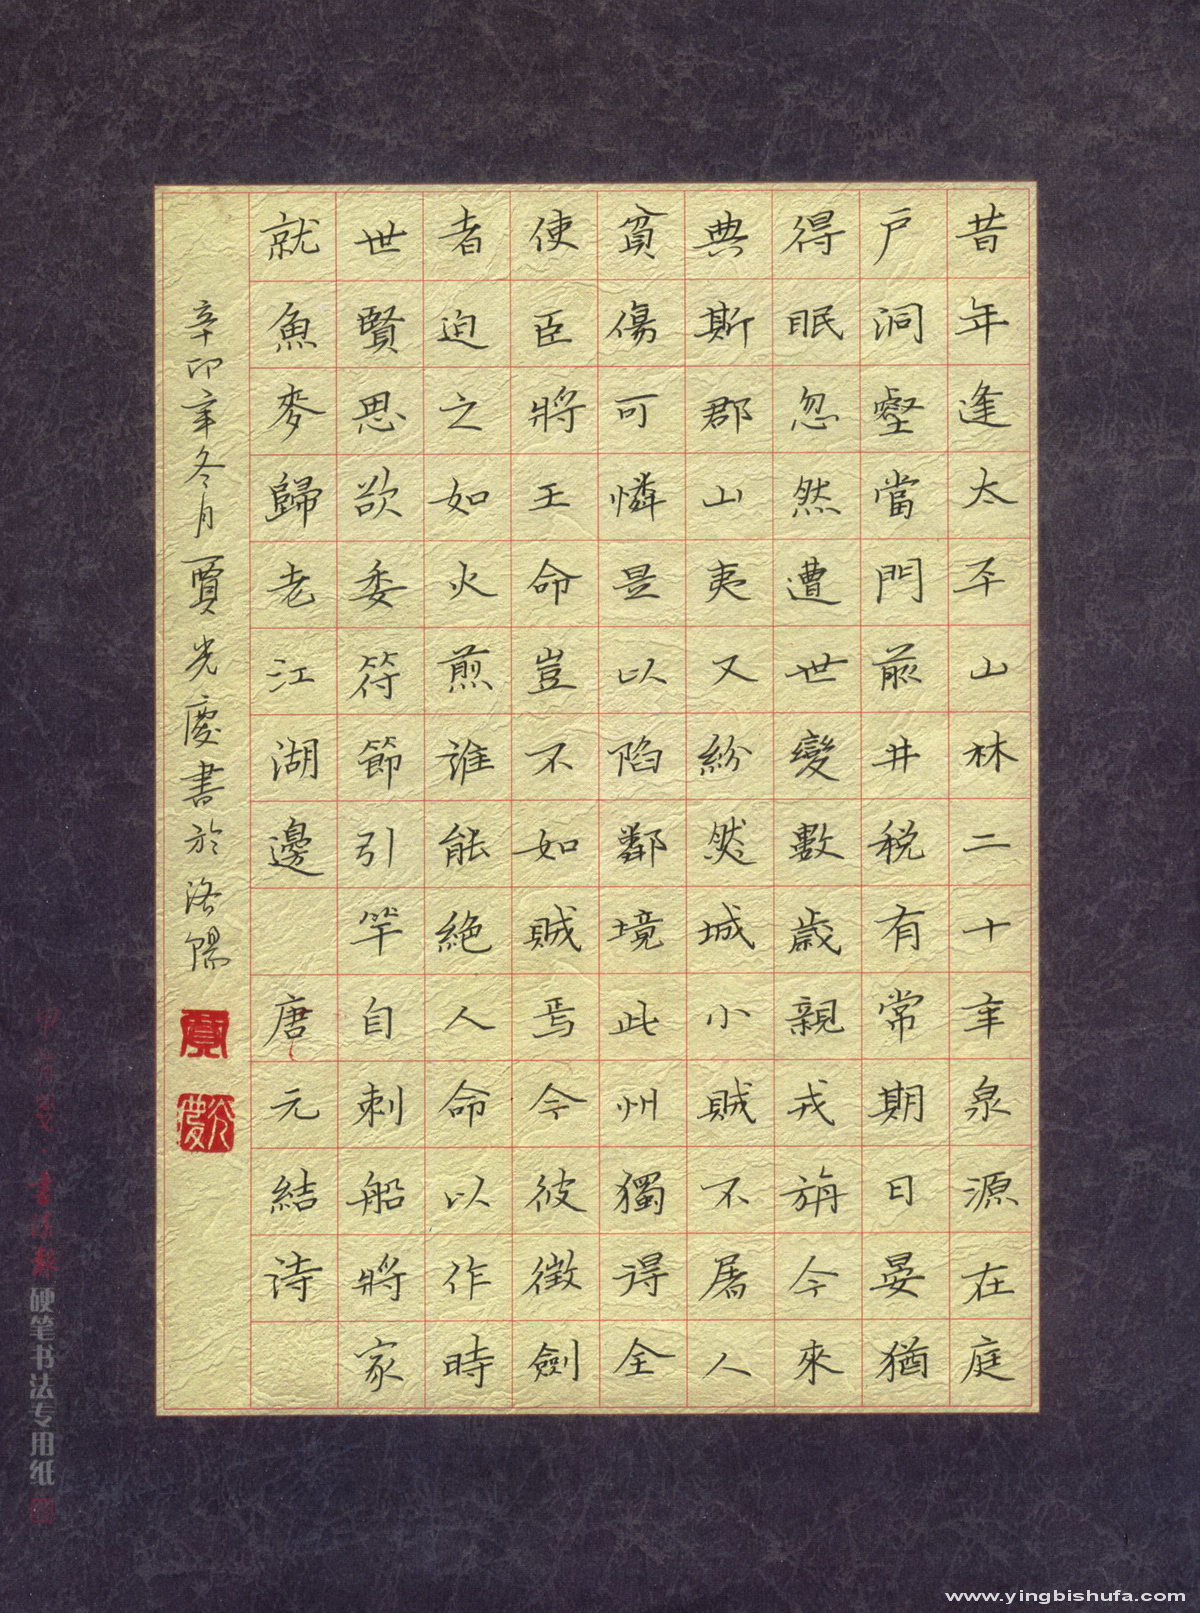 昔年逢太平山林二十年泉源在庭
戶洞壑當門前井税有常期日晏猶
得眠忽然遭世變數歲親戎旃今來
典斯郡山夷又紛然城小賊不屠人
貧傷可憐是以陷鄰境此州獨得全
使臣將王命豈不如賊焉今彼徵劍
者迫之如火煎誰能絕人命以作時
世賢思欲委符節引竿自刺船將家
就魚麥歸老江湖邊 唐元結詩
辛卯年冬月賈光慶書於洛陽
硬笔书法专用纸
www.yingbishufa.com